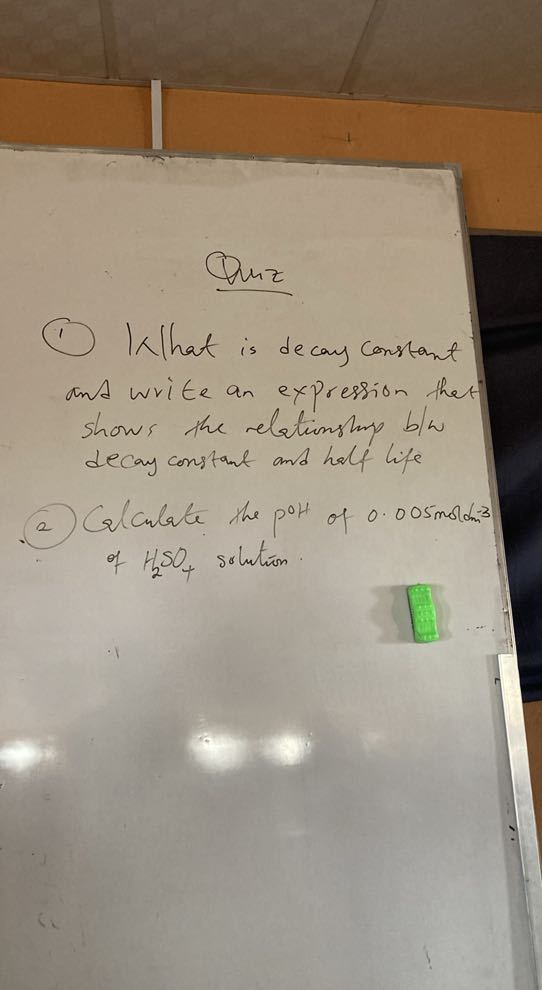 Quiz
① What is decay constant
and write an expression that
shows the relationship b/w
decay constant and half life
② Calculate the pOH of 0.005moldm⁻³
of H₂SO₄ solution.